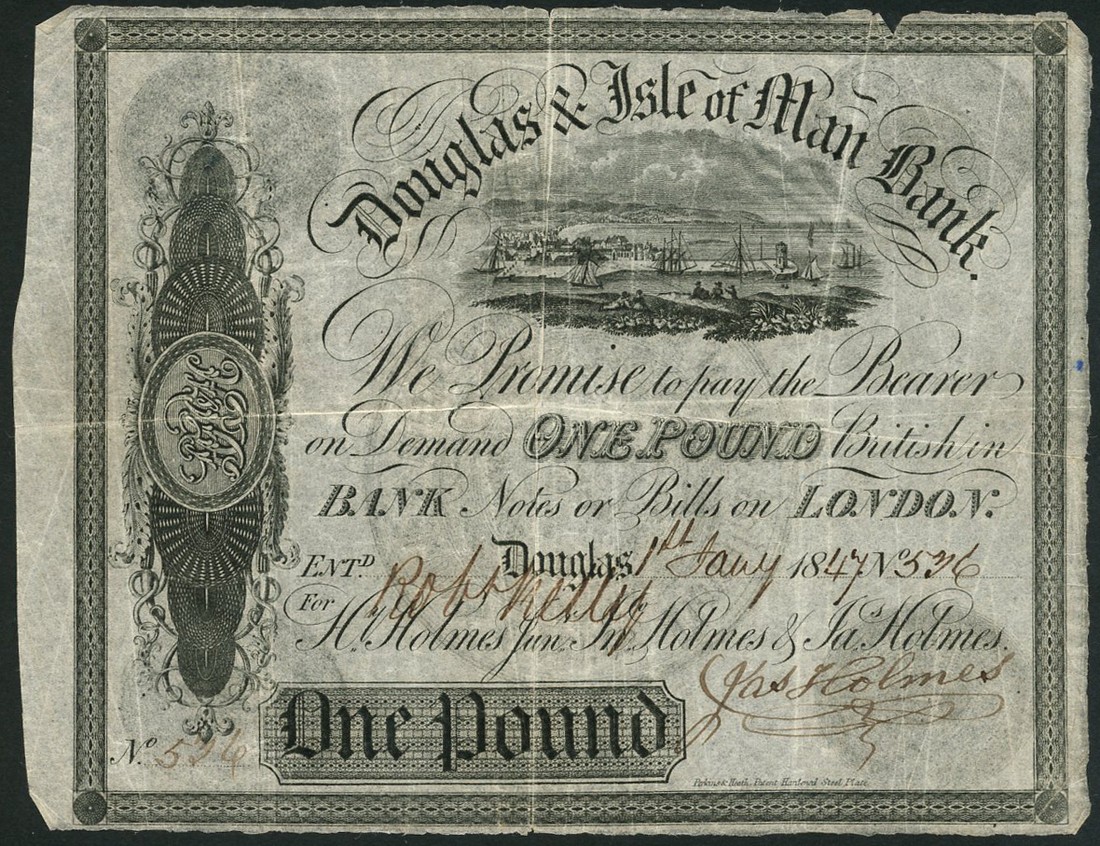 Douglas & Isle of Man Bank.
We Promise to pay the Bearer
on Demand ONE POUND British in
BANK Notes or Bills on LONDON.
Douglas 1st Jany 1847 No 526
ENTD.
For
Hy. Holmes Junr. Jno. Holmes & Jas. Holmes.
Jas Holmes
One Pound
No. 526
Perkins & Heath, Patent Hardened Steel Plate.